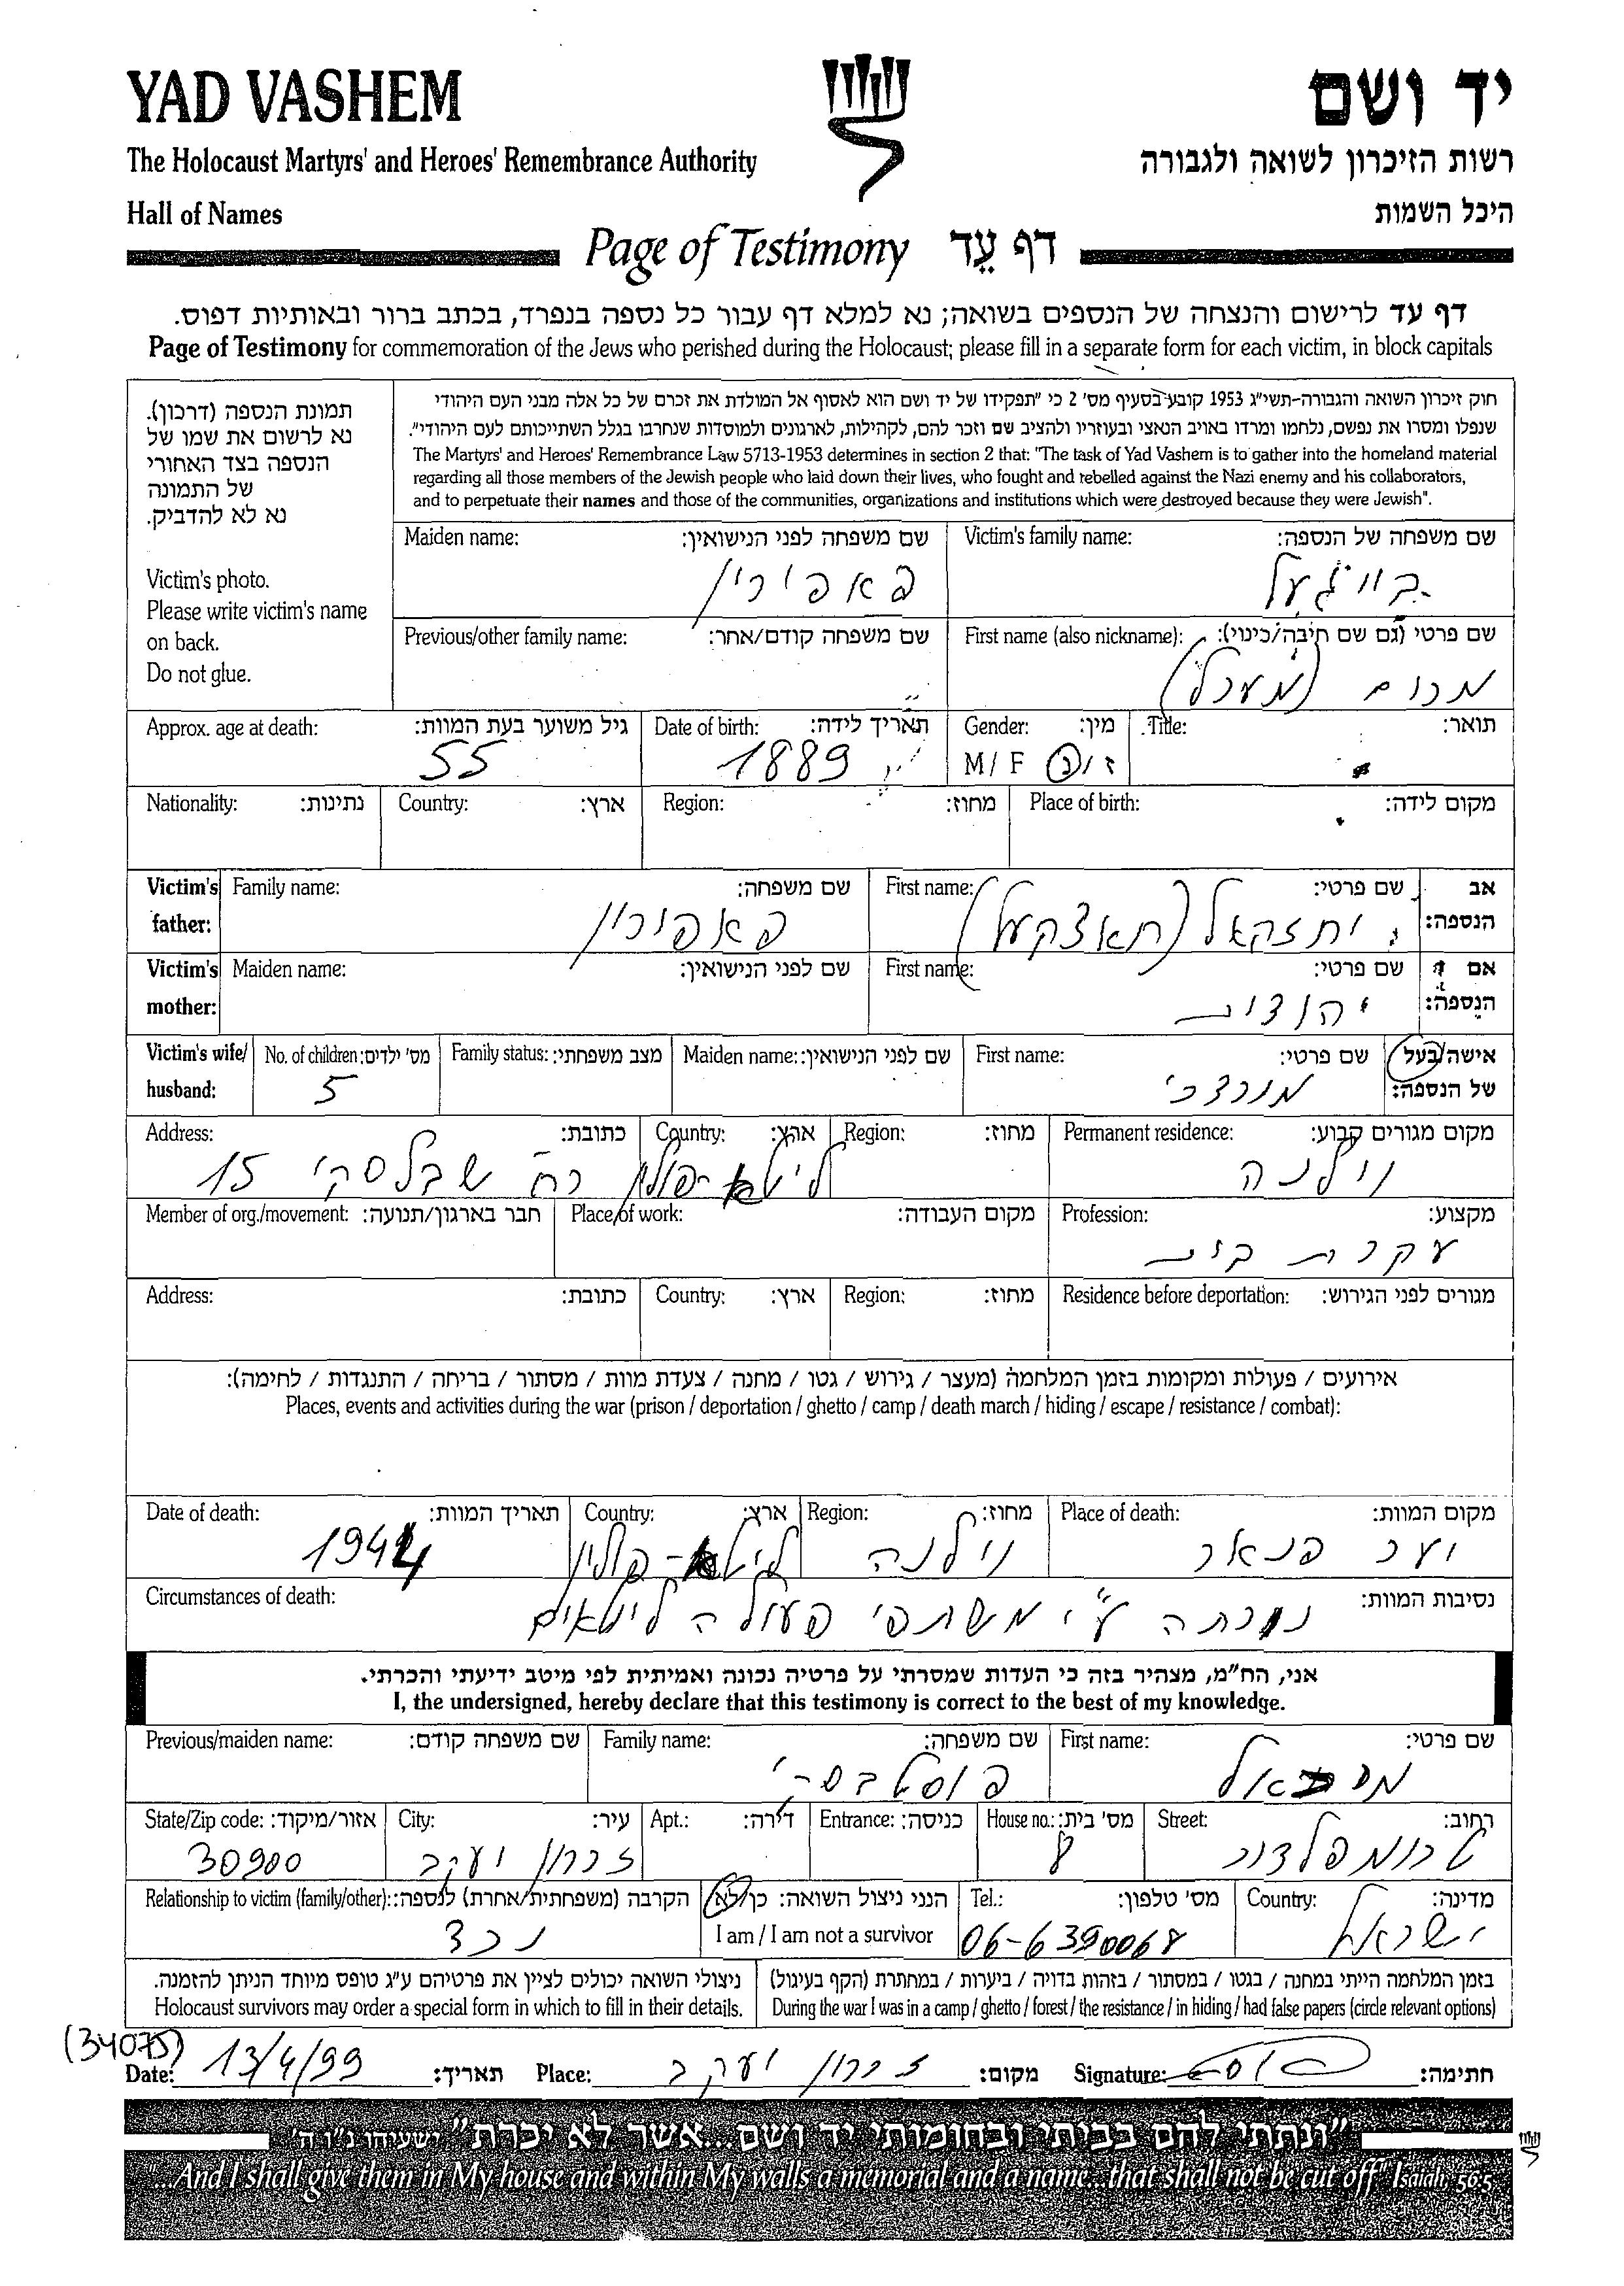 YAD VASHEM יד ושם
The Holocaust Martyrs' and Heroes' Remembrance Authority רשות הזיכרון לשואה ולגבורה
Hall of Names היכל השמות
Page of Testimony דף עֵד
דף עד לרישום והנצחה של הנספים בשואה; נא למלא דף עבור כל נספה בנפרד, בכתב ברור ובאותיות דפוס.
Page of Testimony for commemoration of the Jews who perished during the Holocaust; please fill in a separate form for each victim, in block capitals
תמונת הנספה (דרכון).
נא לרשום את שמו של
הנספה בצד האחורי
של התמונה
נא לא להדביק.
Victim's photo.
Please write victim's name
on back.
Do not glue.
חוק זיכרון השואה והגבורה-תשי״ג 1953 קובע בסעיף מס׳ 2 כי ״תפקידו של יד ושם הוא לאסוף אל המולדת את זכרם של כל אלה מבני העם היהודי
שנפלו ומסרו את נפשם, נלחמו ומרדו באויב הנאצי ובעוזריו ולהציב שם וזכר להם, לקהילות, לארגונים ולמוסדות שנחרבו בגלל השתייכותם לעם היהודי״.
The Martyrs' and Heroes' Remembrance Law 5713-1953 determines in section 2 that: "The task of Yad Vashem is to gather into the homeland material
regarding all those members of the Jewish people who laid down their lives, who fought and rebelled against the Nazi enemy and his collaborators,
and to perpetuate their names and those of the communities, organizations and institutions which were destroyed because they were Jewish".
Maiden name: שם משפחה לפני הנישואין: Victim's family name: שם משפחה של הנספה:
פאפירין בוייגעל
Previous/other family name: שם משפחה קודם/אחר: First name (also nickname): שם פרטי (גם שם חיבה/כינוי):
מרים
Approx. age at death: גיל משוער בעת המוות: Date of birth: תאריך לידה: Gender: מין: Title: תואר:
55 1889 M/F ז/נ
Nationality: נתינות: Country: ארץ: Region: מחוז: Place of birth: מקום לידה:
Victim's father: Family name: שם משפחה: First name: שם פרטי: אב הנספה:
פאפירין יחזקאל (חאצקעל)
Victim's mother: Maiden name: שם לפני הנישואין: First name: שם פרטי: אם הנספה:
יהודית
Victim's wife/ husband: No. of children: מס׳ ילדים: Family status: מצב משפחתי: Maiden name: שם לפני הנישואין: First name: שם פרטי: אישה/בעל של הנספה:
5 מורדכי
Address: כתובת: Country: ארץ: Region: מחוז: Permanent residence: מקום מגורים קבוע:
רח׳ שבלסקי 15 ליטא-פולין וילנה
Member of org./movement: חבר בארגון/תנועה: Place of work: מקום העבודה: Profession: מקצוע:
עקרת בית
Address: כתובת: Country: ארץ: Region: מחוז: Residence before deportation: מגורים לפני הגירוש:
אירועים / פעולות ומקומות בזמן המלחמה (מעצר / גירוש / גטו / מחנה / צעדת מוות / מסתור / בריחה / התנגדות / לחימה):
Places, events and activities during the war (prison / deportation / ghetto / camp / death march / hiding / escape / resistance / combat):
Date of death: תאריך המוות: Country: ארץ: Region: מחוז: Place of death: מקום המוות:
1944 ליטא-פולין וילנה יער פנאר
Circumstances of death: נסיבות המוות:
נורתה ע״י משתפי פעולה ליטאים
אני, הח״מ, מצהיר בזה כי העדות שמסרתי על פרטיה נכונה ואמיתית לפי מיטב ידיעתי והכרתי.
I, the undersigned, hereby declare that this testimony is correct to the best of my knowledge.
Previous/maiden name: שם משפחה קודם: Family name: שם משפחה: First name: שם פרטי:
פוסטבסקי
State/Zip code: אזור/מיקוד: City: עיר: Apt.: דירה: Entrance: כניסה: House no.: מס׳ בית: Street: רחוב:
30900 זכרון יעקב 8 טרומפלדור
Relationship to victim (family/other): הקרבה (משפחתית/אחרת) לנספה: הנני ניצול השואה: כן/לא Tel.: מס׳ טלפון: Country: מדינה:
נכד I am / I am not a survivor 06-6390068 ישראל
ניצולי השואה יכולים לציין את פרטיהם ע״ג טופס מיוחד הניתן להזמנה. בזמן המלחמה הייתי במחנה / בגטו / במסתור / בזהות בדויה / ביערות / במחתרת (הקף בעיגול)
Holocaust survivors may order a special form in which to fill in their details. During the war I was in a camp / ghetto / forest / the resistance / in hiding / had false papers (circle relevant options)
(34075)
Date: 13/4/99 תאריך: Place: זכרון יעקב מקום: Signature: חתימה:
״ונתתי להם בביתי ובחומותי יד ושם...אשר לא יכרת״ ישעיהו נ״ו ה׳
"...And I shall give them in My house and within My walls a memorial and a name...that shall not be cut off" Isaiah, 56:5